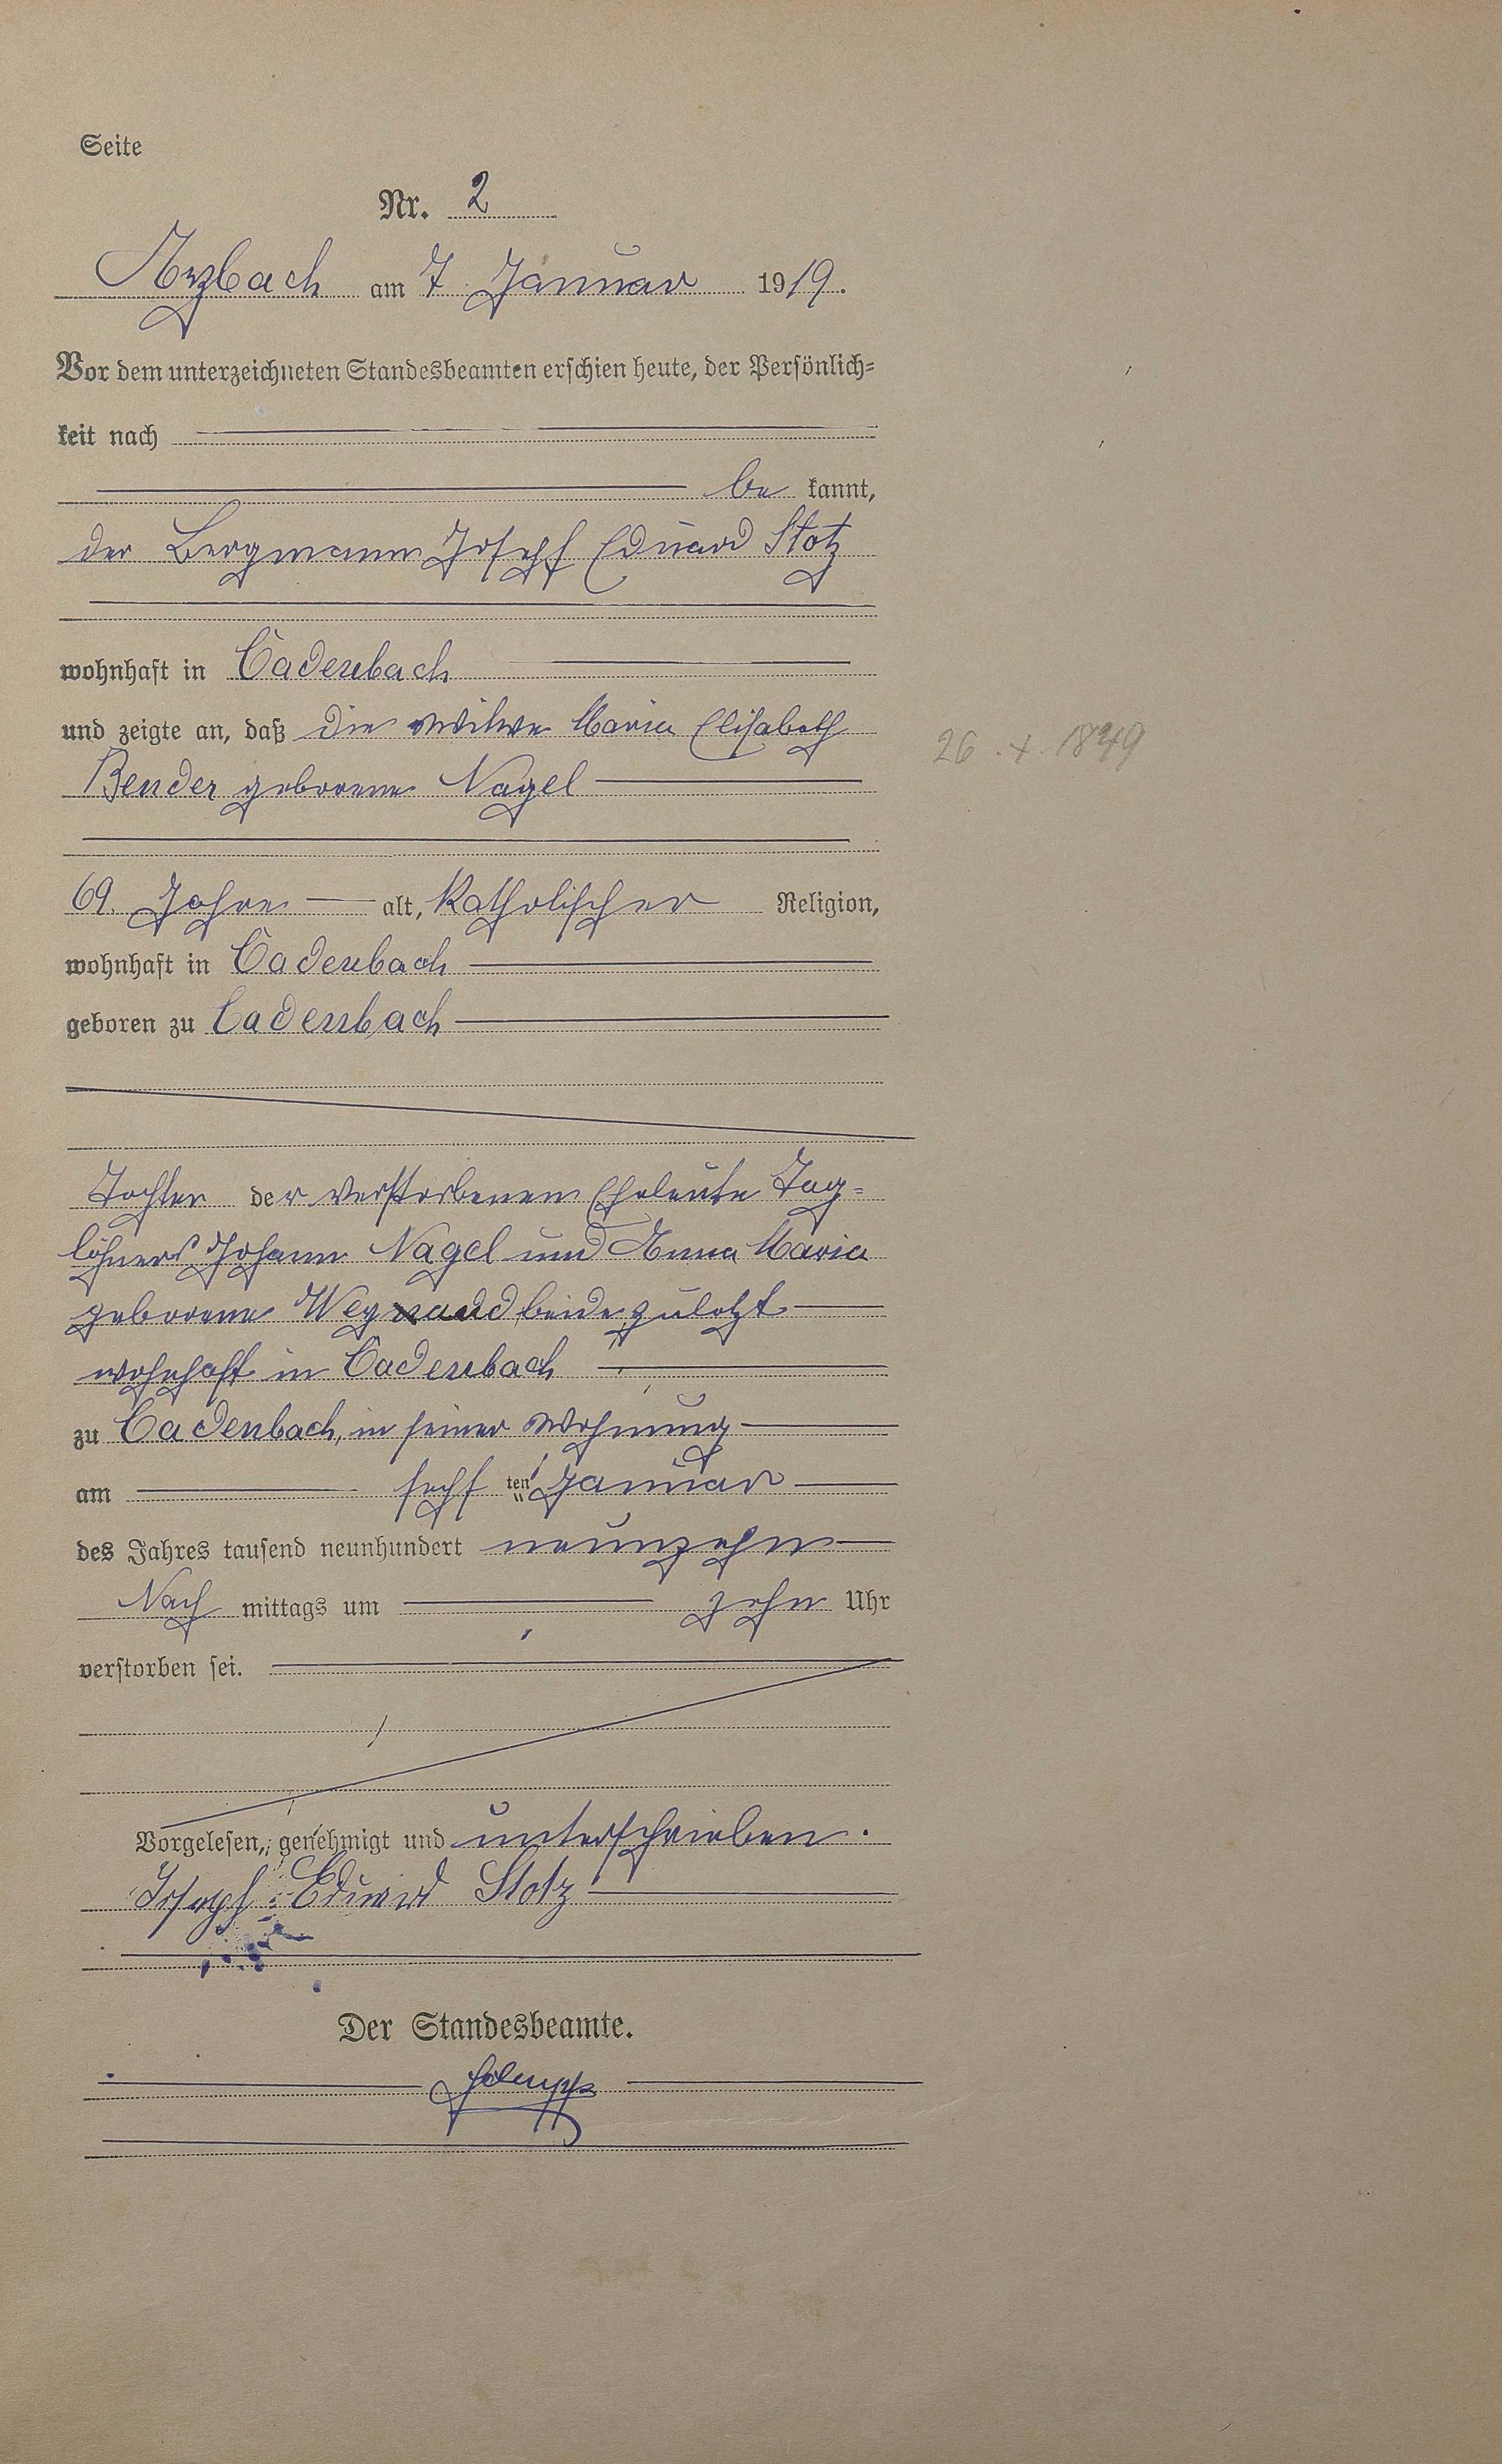 Seite
Nr. 2
Arzbach am 7 Januar 1919.
Vor dem unterzeichneten Standesbeamten erschien heute, der Persönlich-
keit nach
be kannt,
der Bergmann Joseph Eduard Stotz
wohnhaft in Cadenbach
und zeigte an, daß die Witwe Maria Elisabeth
26. X. 1849
Bender geborene Nagel
69. Jahre alt, katholischer Religion,
wohnhaft in Cadenbach
geboren zu Cadenbach
Tochter der verstorbenen Eheleute Tag-
löhners Johann Nagel und Anna Maria
geborene beide zuletzt
wohnhaft in Cadenbach
zu Cadenbach, in seiner Wohnung
am sechs ten Januar
des Jahres tausend neunhundert neunzehn
Nach mittags um zehn Uhr
verstorben sei.
Vorgelesen, genehmigt und unterschrieben.
Joseph Eduard Stotz
Der Standesbeamte.